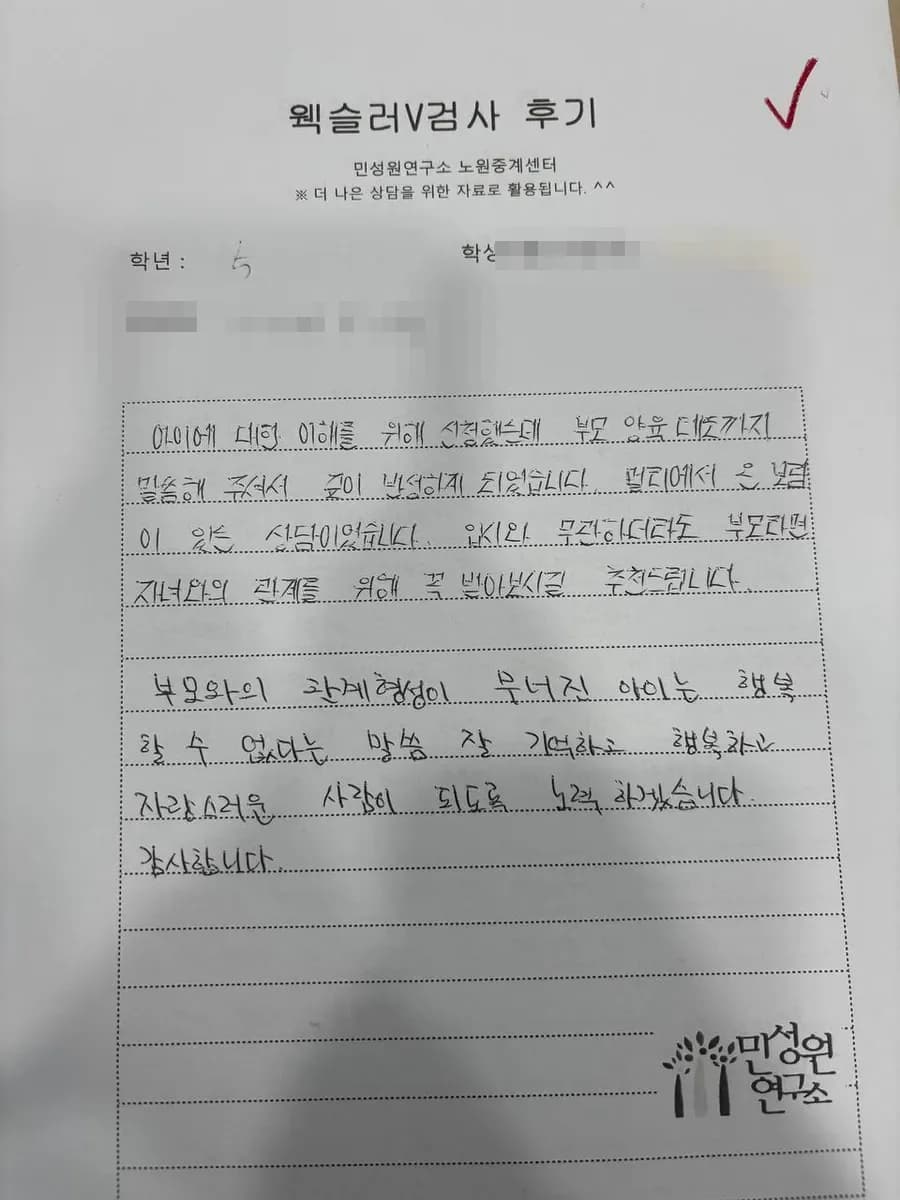 웩슬러V검사 후기
민성원연구소 노원중계센터
※ 더 나은 상담을 위한 자료로 활용됩니다. ^^
학년 : 5
아이에 대한 이해를 위해 신청했는데 부모 양육 태도까지
말씀해 주셔서 깊이 반성하게 되었습니다. 멀리에서 온 보람
이 있는 상담이었습니다. 입시와 무관하더라도 부모라면
자녀와의 관계를 위해 꼭 받아보시길 추천드립니다.
부모와의 관계형성이 무너진 아이는 행복
할 수 없다는 말씀 잘 기억하고 행복하고
자랑스러운 사람이 되도록 노력 하겠습니다.
감사합니다.
민성원
연구소